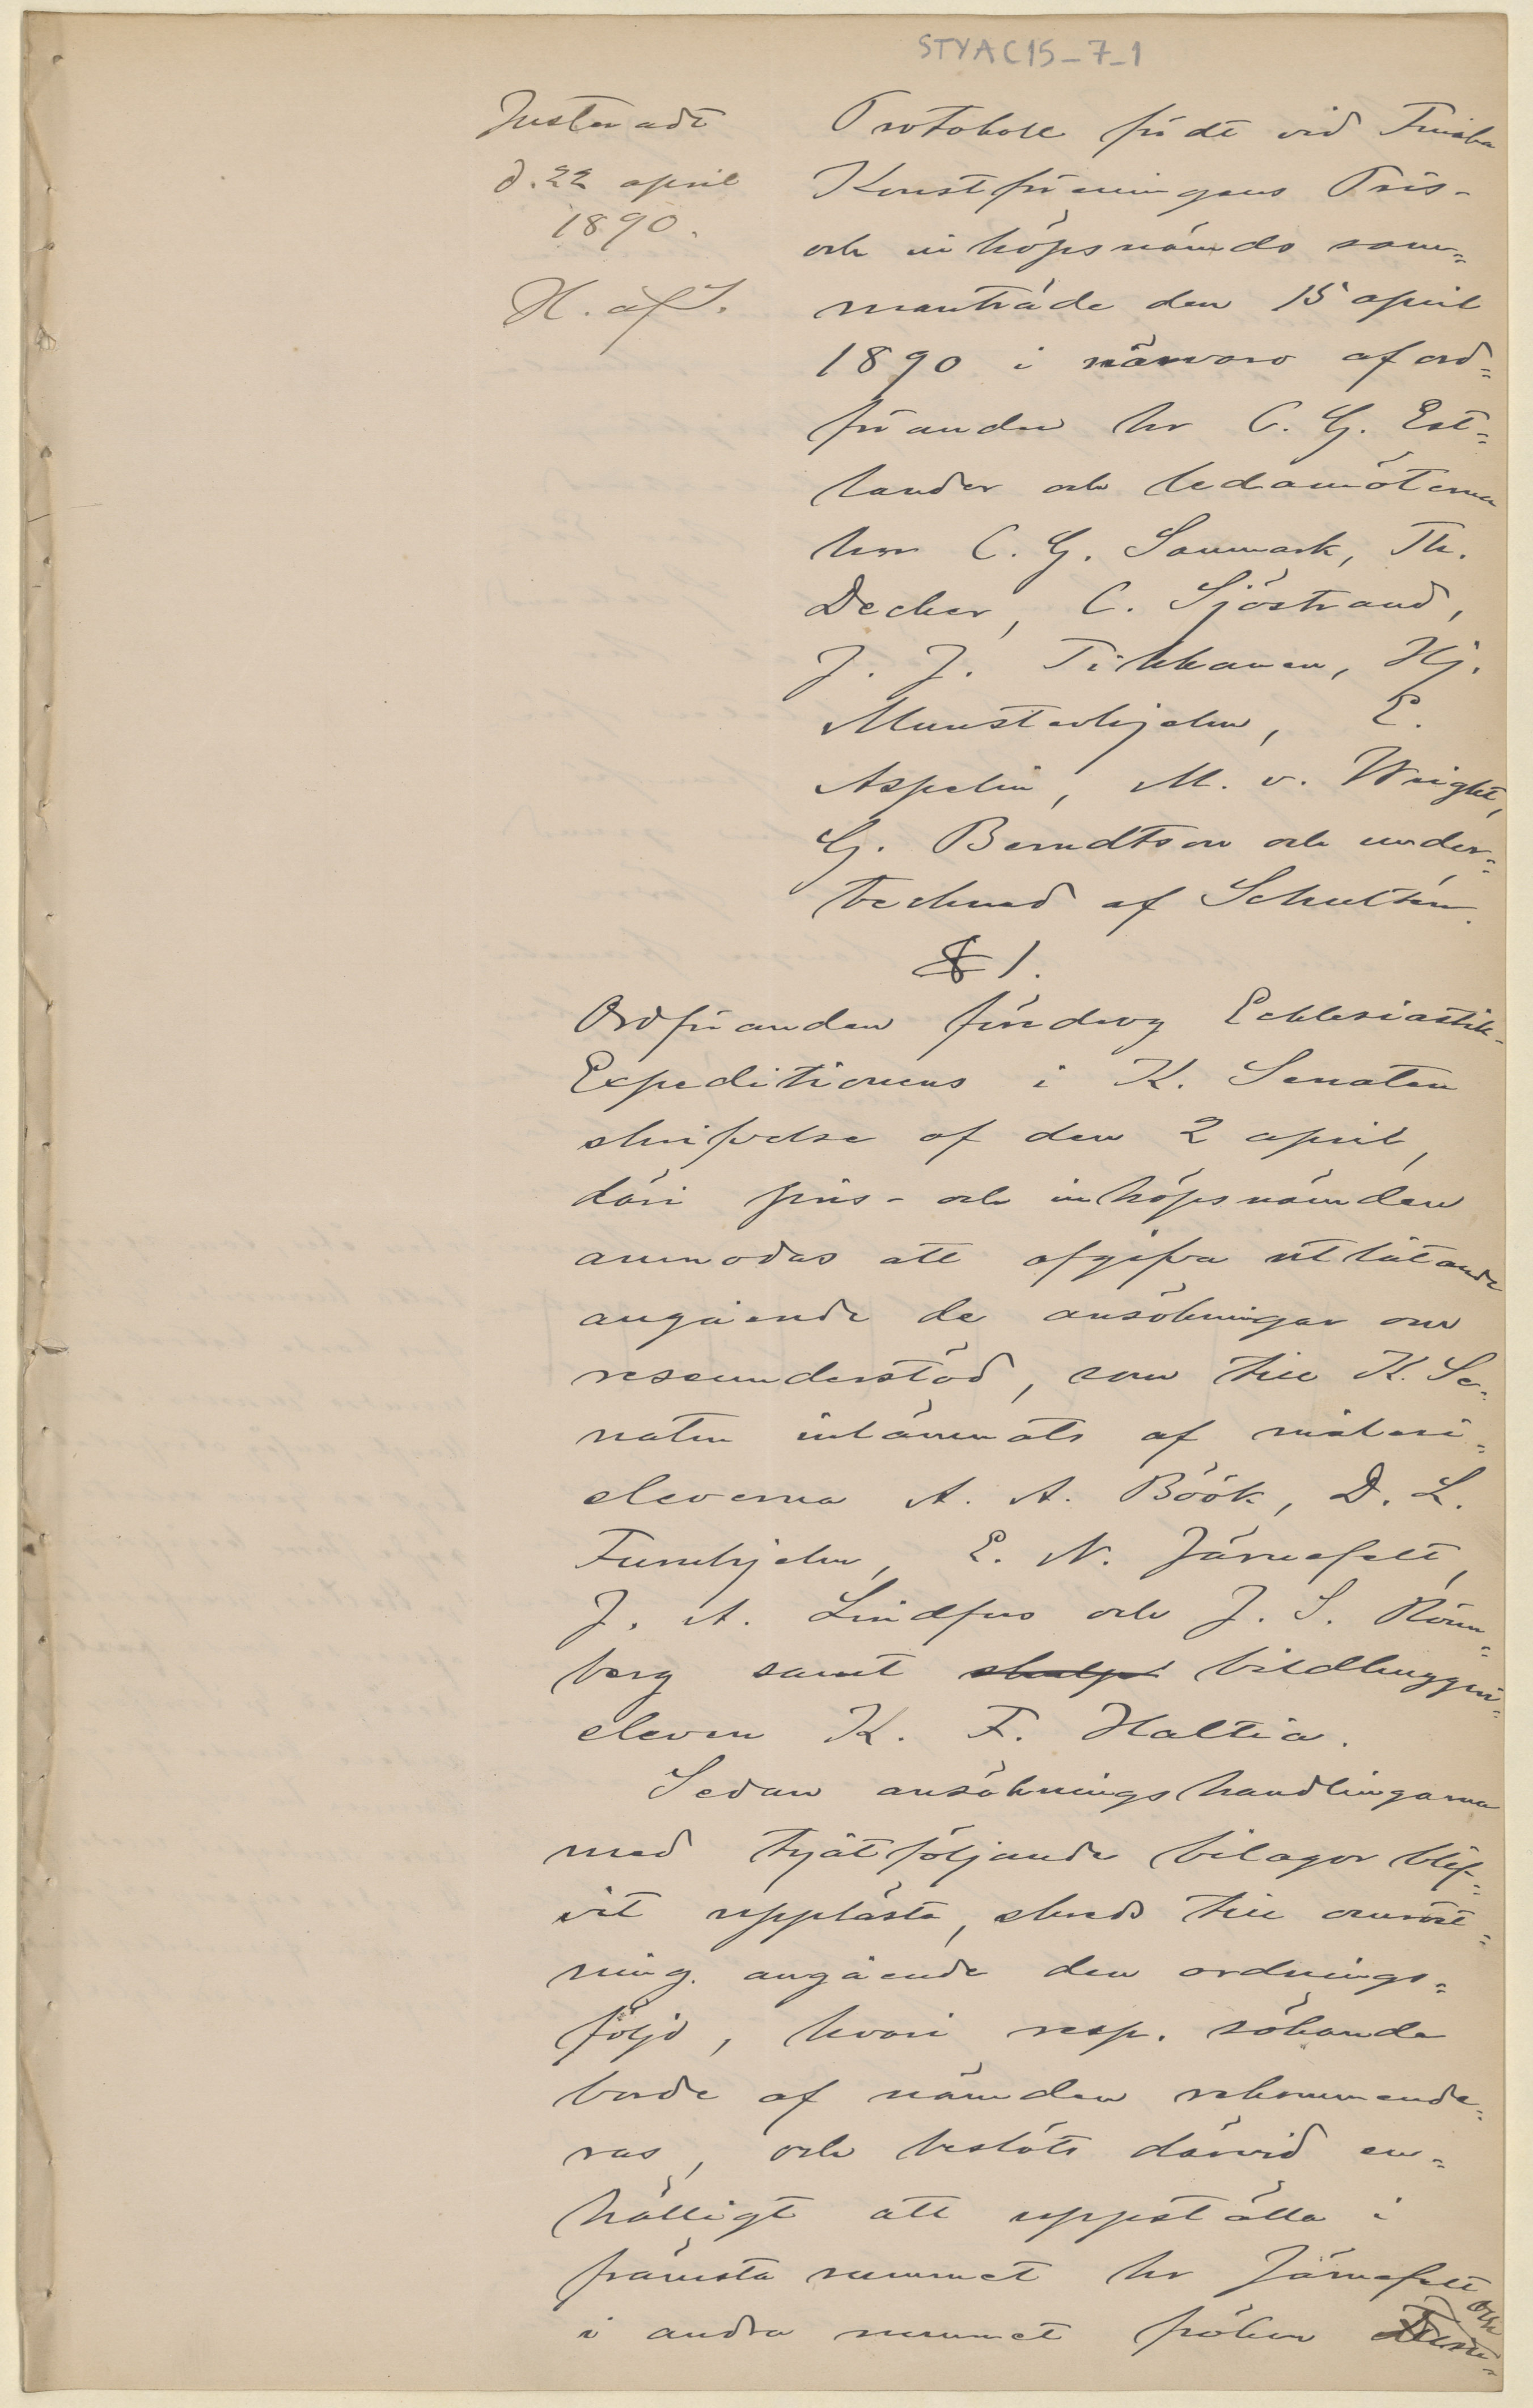 STYAC15_7_1
Justeradt
d. 22 april
1890.
H. af S.
Protokoll fördt vid Finska
Konstföreningens Pris-
och inköpsnämds sam=
manträde den 15 april
1890 i närvaro af ord=
föranden hr C. G. Est=
lander och ledamöterna
hrr C. G. Sanmark, Th.
Decker, C. Sjöstrand,
J. J. Tikkanen, Hj.
Munsterhjelm, E.
Aspelin, M. v. Wright,
G. Berndtson och under=
tecknad af Schultén.
§ 1.
Ordföranden föredrog Ecklesiastik-
Expeditionens i K. Senaten
skrifvelse af den 2 april,
däri pris- och inköpsnämden
anmodas att afgifva utlåtande
angående de ansökningar om
reseunderstöd, som till K. Se=
naten inlämnats af måleri=
eleverna A. A. Böök, D. L.
Furuhjelm, E. N. Järnefelt,
J. A. Lindfors och J. S. Rönn=
berg samt skulp bildhuggeri=
eleven K. F. Haltia.
Sedan ansökningshandlingarna
med tyåtföljande bilagor blif=
vit upplästa, skreds till omröst=
ning angående den ordnings=
följd, hvari resp. sökande
borde af nämden rekommende=
ras, och beslöts därvid en=
hälligt att uppställa i
främsta rummet hr Järnefelt och
i andra rummet fröken